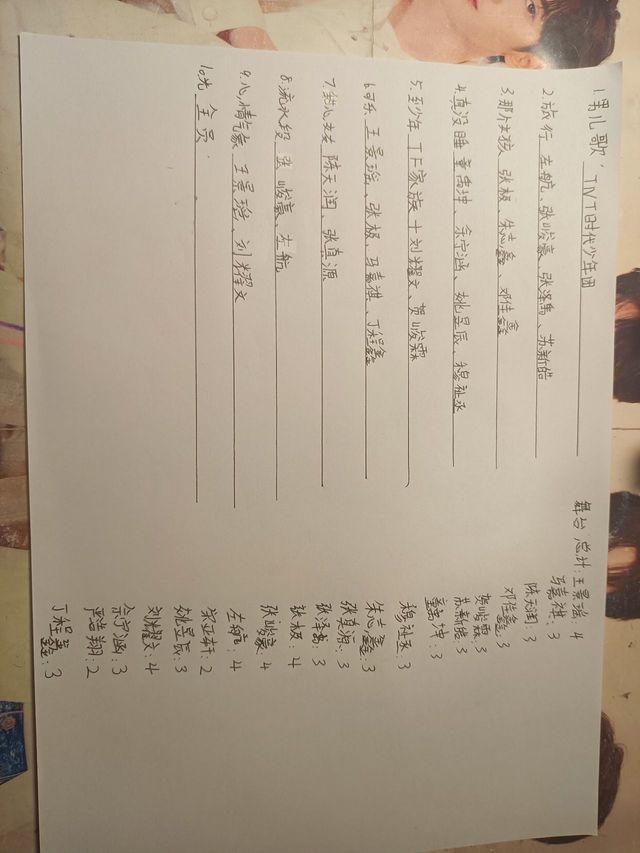 1.男儿歌: TNT时代少年团
2.旅行 左航、张峻豪、张泽禹、苏新皓
3.那个女孩 张极、朱志鑫 邓佳鑫
4.真没睡 童禹坤、余宇涵、姚昱辰、穆祉丞
5.到少年 TF家族 + 刘耀文、贺峻霖
6.可乐 王景瑶、张极、马嘉祺、丁程鑫
7.我的心 陈天润、张真源
8.流水段 张峻豪、左航
9.心情气象 王景瑶、刘耀文
10.光 全员.
舞台总计:王景瑶 4
马嘉祺:3
陈天润 3
邓佳鑫:3
贺峻霖:3
苏新皓:3
童禹坤:3
穆祉丞:3
朱志鑫:3
张真源:3
张泽禹:3
张极:4
张峻豪:4
左航:4
宋亚轩:2
姚昱辰:3
刘耀文:4
余宇涵:3
严浩翔:2
丁程鑫:3